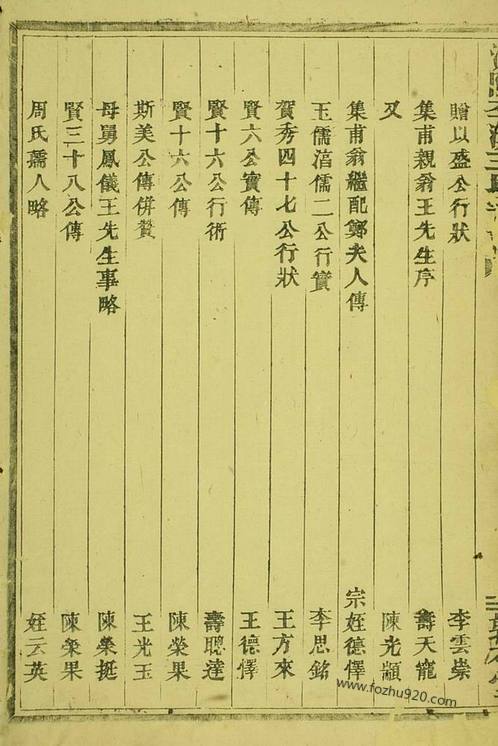 贈以盛公行狀 李雲崇
集甫親翁王先生序 壽天寵
又 陳光顓
集甫翁繼配鄭夫人傳 宗姪德懌
玉儒涪儒二公行實 李思銘
賀秀四十七公行狀 王方來
賢六公實傳 王德懌
賢十六公行術 壽聰達
賢十六公傳 陳榮果
斯美公傳併贊 王光玉
母舅鳳儀王先生事略 陳榮挺
賢三十八公傳 陳榮果
周氏孺人略 姪云英
www.fozhu920.com